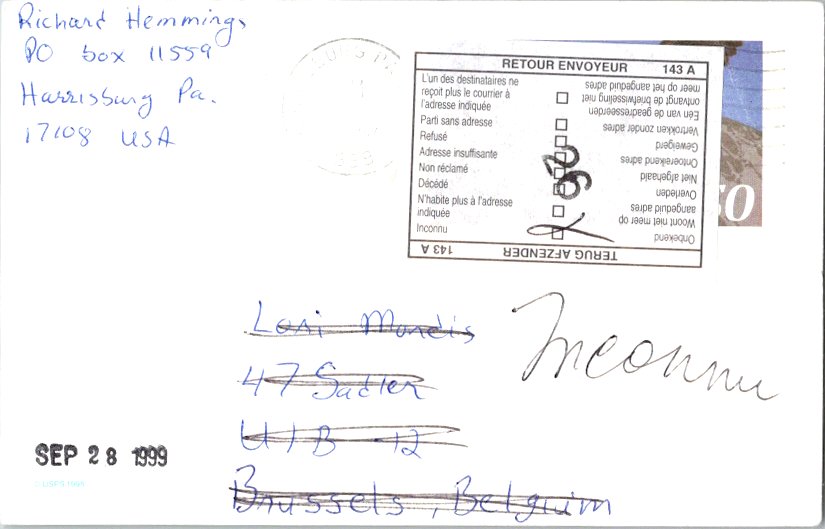 Richard Hemmings
PO box 11559
Harrisburg Pa.
17108 USA
RETOUR ENVOYEUR 143 A
L'un des destinataires ne
reçoit plus le courrier à
l'adresse indiquée
Parti sans adresse
Refusé
Adresse insuffisante
Non réclamé
Décédé
N'habite plus à l'adresse
indiquée
Inconnu
TERUG AFZENDER 143 A
Onbekend
Woont niet meer op
aangeduid adres
Overleden
Niet afgehaald
Ontoereikend adres
Geweigerd
Vertrokken zonder adres
Eén van de geadresseerden
ontvangt de briefwisseling niet
meer op het aangeduid adres
50
Lori Mundis
47 Sadler
U1B 12
Brussels, Belguim
Inconnu
SEP 28 1999
© USPS 1999